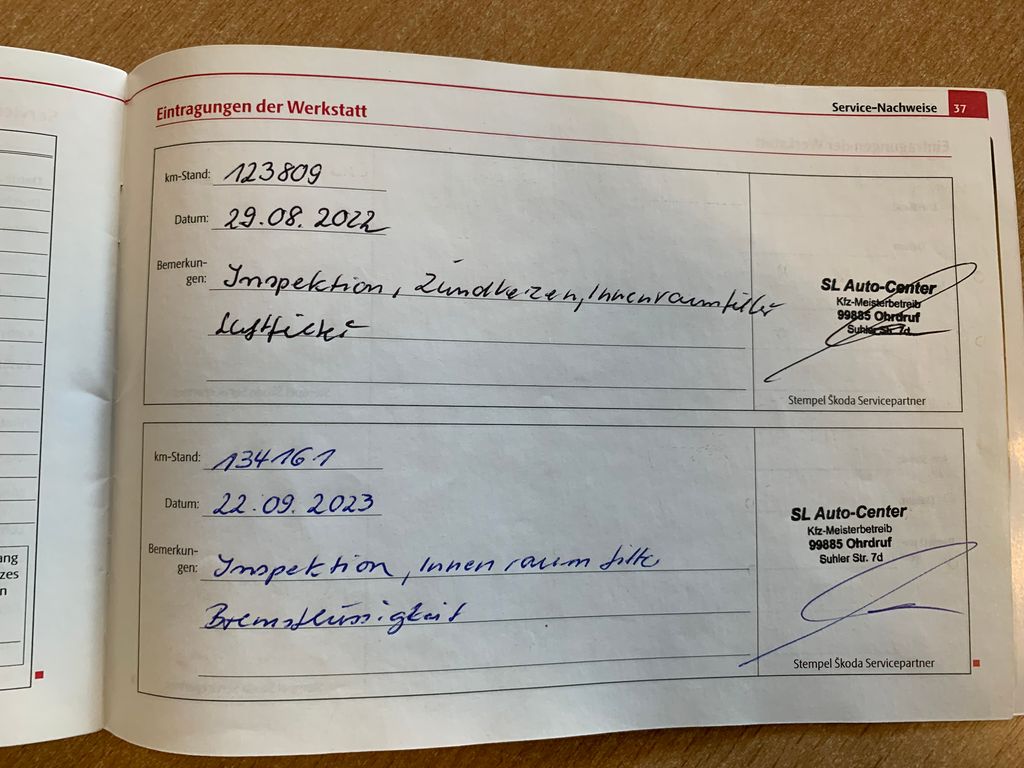 Eintragungen der Werkstatt
Service-Nachweise 37
km-Stand: 123809
Datum: 29.08.2022
Bemerkun-
gen: Inspektion, Zündkerzen, Innenraumfilter
Luftfilter
SL Auto-Center
Kfz-Meisterbetrieb
99885 Ohrdruf
Suhler Str. 7d
Stempel Škoda Servicepartner
km-Stand: 134161
Datum: 22.09.2023
Bemerkun-
gen: Inspektion, Innenraumfilter
Bremsflüssigkeit
SL Auto-Center
Kfz-Meisterbetrieb
99885 Ohrdruf
Suhler Str. 7d
Stempel Škoda Servicepartner
ang
zes
n